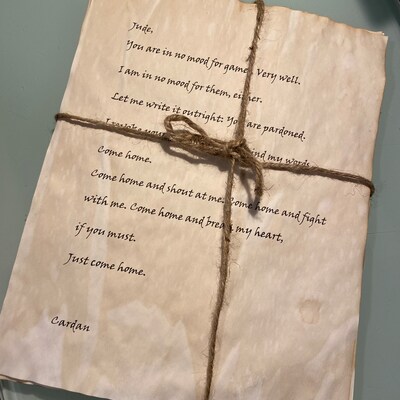 Jude,
You are in no mood for games. Very well.
I am in no mood for them, either.
Let me write it outright: You are pardoned.
I revoke your my words.
Come home.
Come home and shout at me. Come home and fight
with me. Come home and break my heart,
if you must.
Just come home.
Cardan